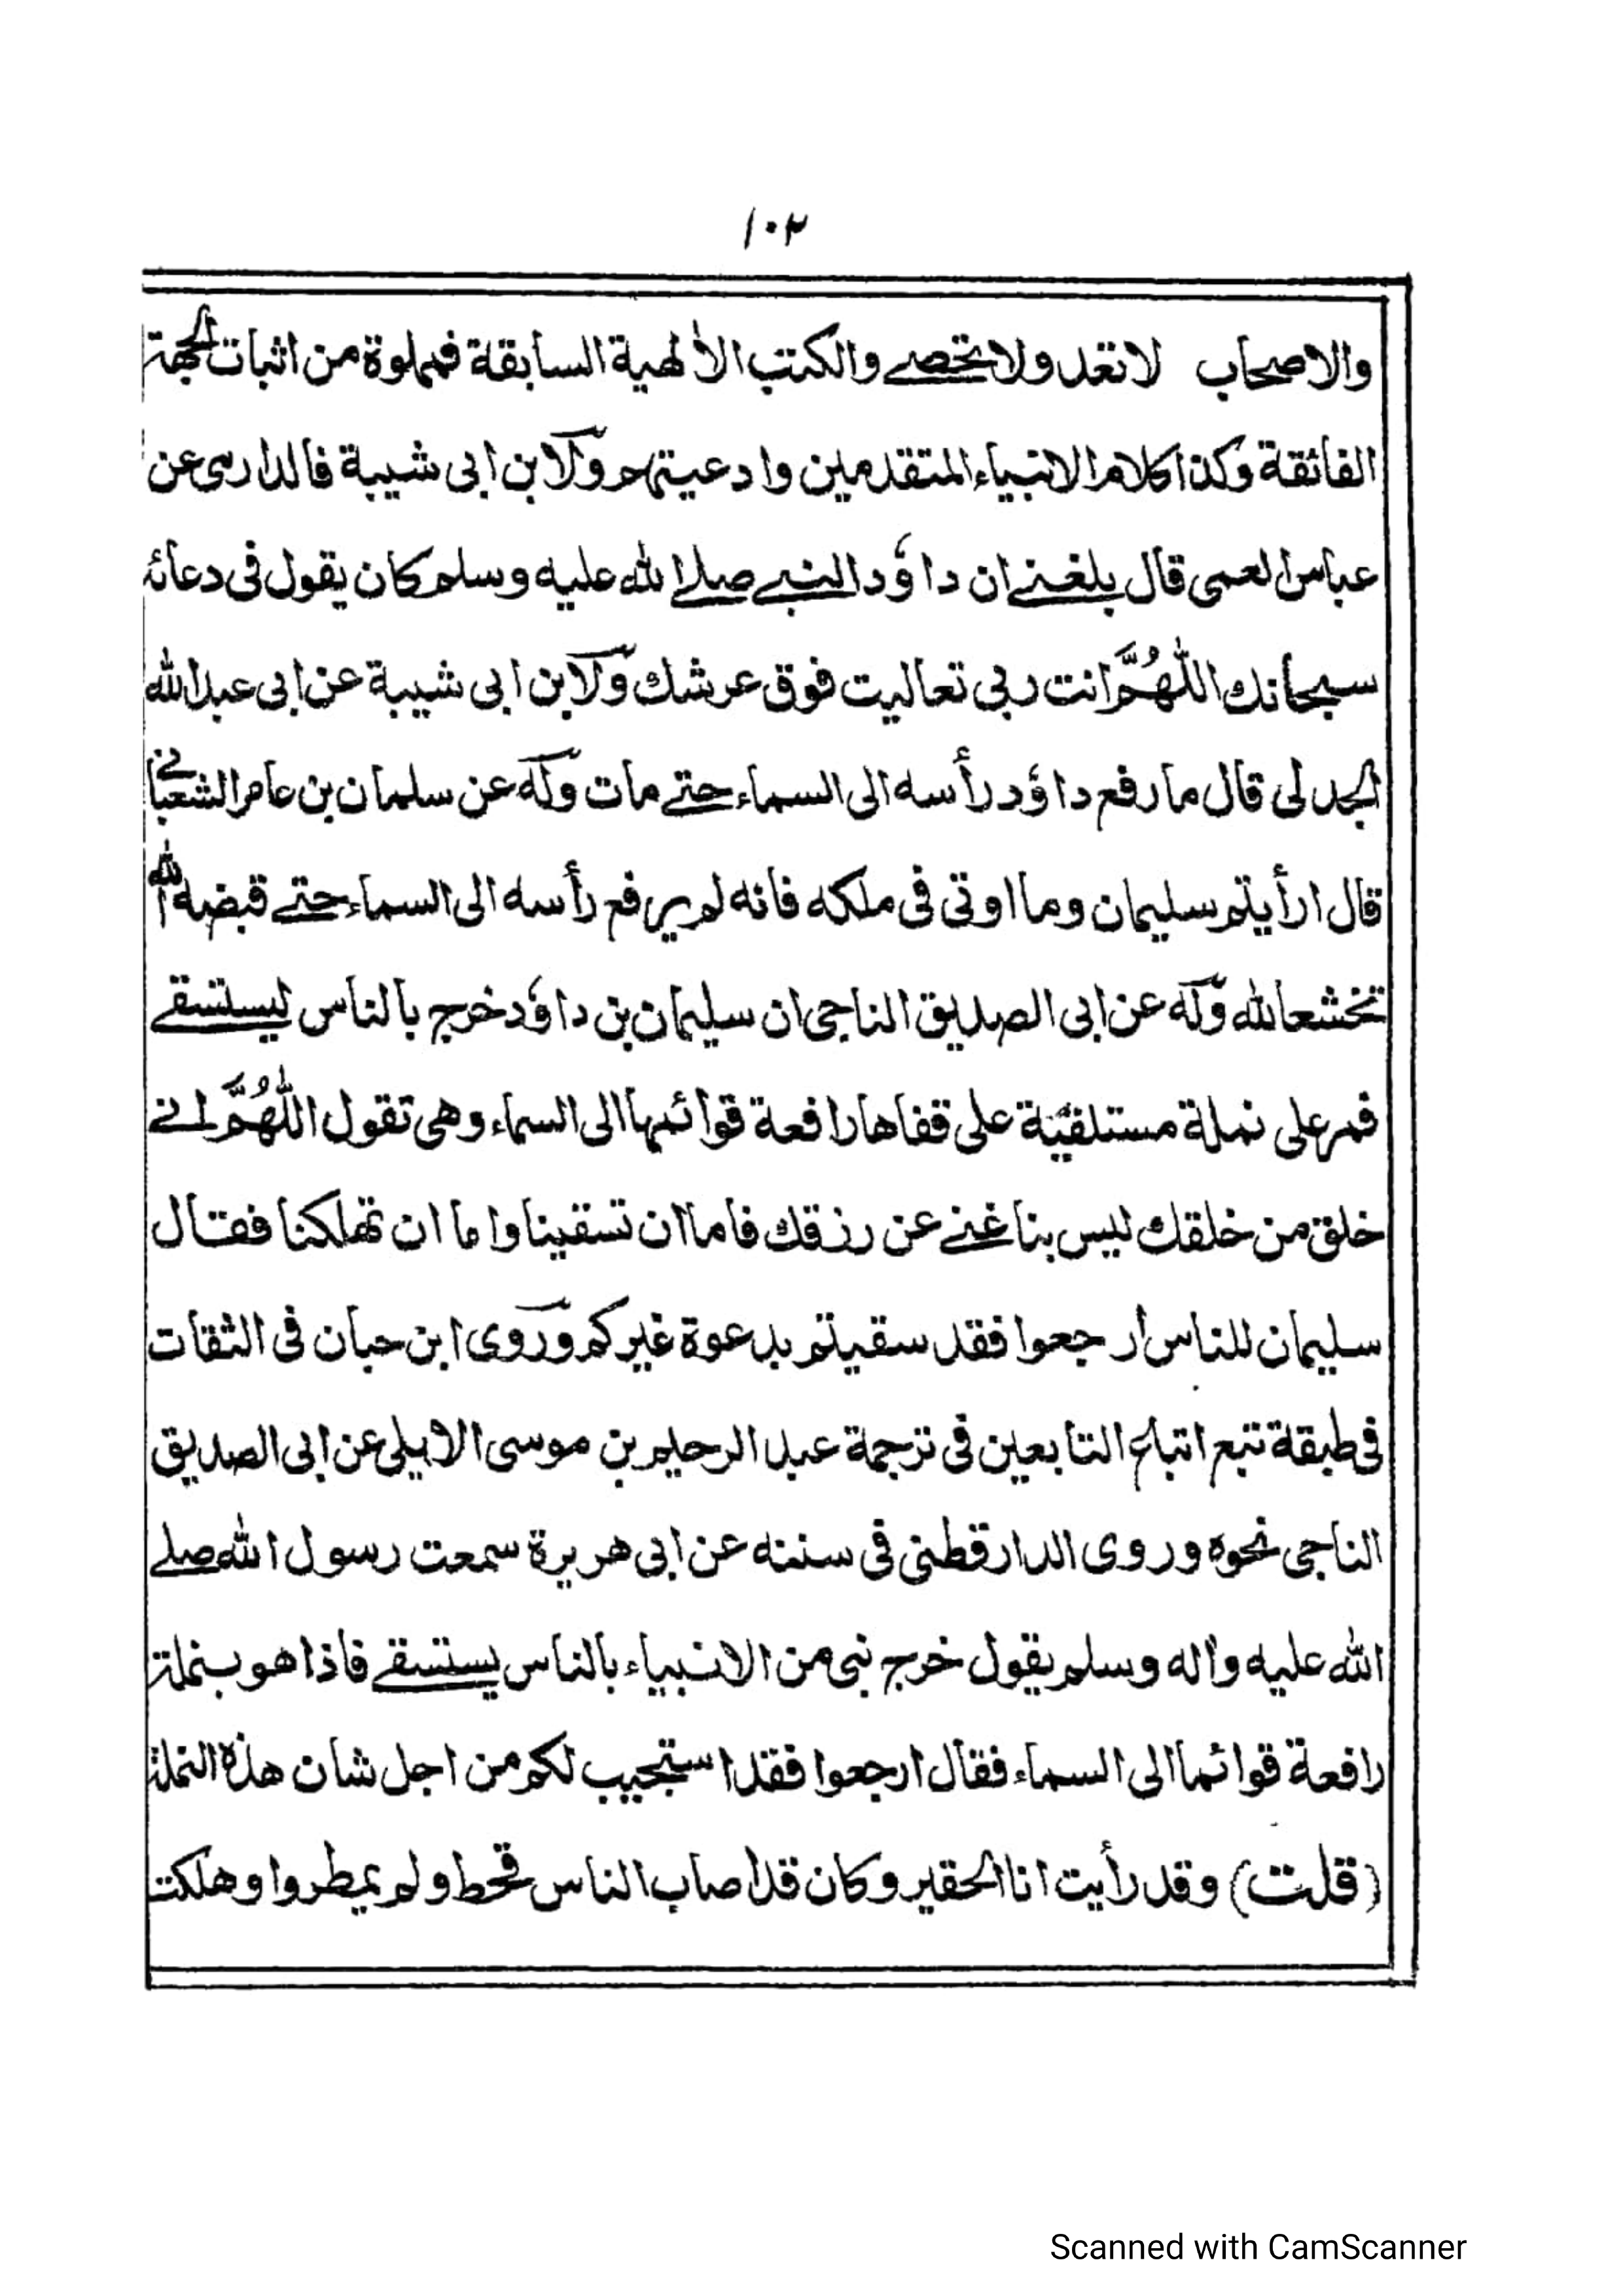 ١٠٢
والاصحاب لا تعد ولا تحصے والكتب الالهية السابقة فمملوة من اثبات الجهة
الفائقة وكذا كلام الانبياء المتقدمين وادعيتهم ولابن ابى شيبة فالدارمى عن
عباس العمى قال بلغنے ان داؤد النبے صلے الله عليه وسلم كان يقول فى دعائه
سبحانك اللهُمَّ انت ربى تعاليت فوق عرشك ولابن ابى شيبة عن ابى عبد الله
الجدلى قال ما رفع داؤد رأسه الى السماء حتے مات وله عن سلمان بن عامر الشعبانے
قال ارأيتم سليمان وما اوتى فى ملكه فانه لم يرفع رأسه الى السماء حتے قبضه الله
تخشعا لله وله عن ابى الصديق الناجى ان سليمان بن داؤد خرج بالناس ليستسقے
فمر على نملة مستلقية على قفاها رافعة قوائمها الى السماء وهى تقول اللهُمَّ انے
خلق من خلقك ليس بنا غنے عن رزقك فاما ان تسقينا واما ان تهلكنا فقال
سليمان للناس ارجعوا فقد سقيتم بدعوة غيركم وروى ابن حبان فى الثقات
فى طبقة تبع اتباع التابعين فى ترجمة عبد الرحيم بن موسى الايلى عن ابى الصديق
الناجى نحوه وروى الدارقطنى فى سننه عن ابى هريرة سمعت رسول الله صلے
الله عليه واٰله وسلم يقول خرج نبى من الانبياء بالناس يستسقے فاذا هو بنملة
رافعة قوائما الى السماء فقال ارجعوا فقد استجيب لكم من اجل شان هذه النملة
(قلت) وقد رأيت انا الحقير وكان قد اصاب الناس قحط ولم يمطروا وهلكت
Scanned with CamScanner